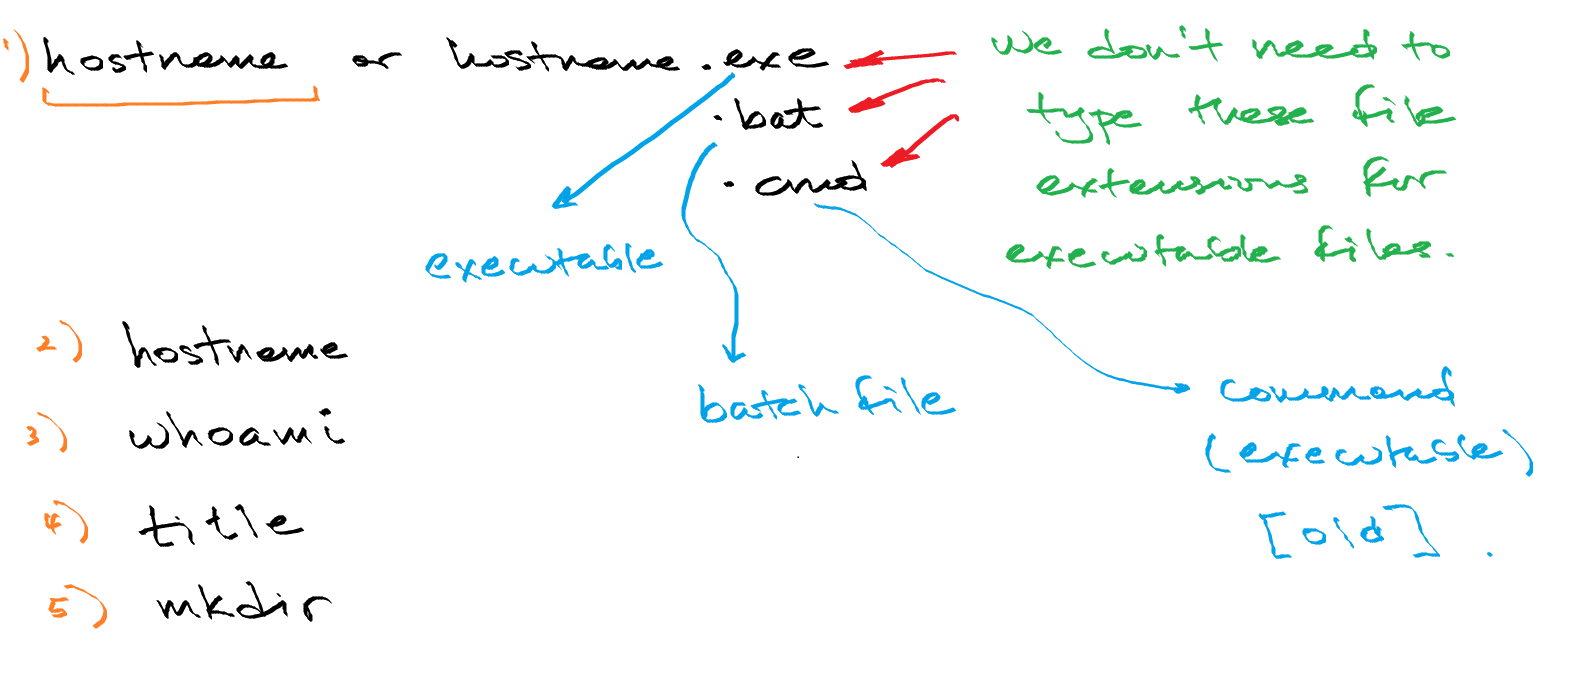 1) hostname or hostname.exe
.bat
.cmd
we don't need to
type these file
extensions for
executable files.
executable
batch file
command
(executable)
[old].
2) hostname
3) whoami
4) title
5) mkdir